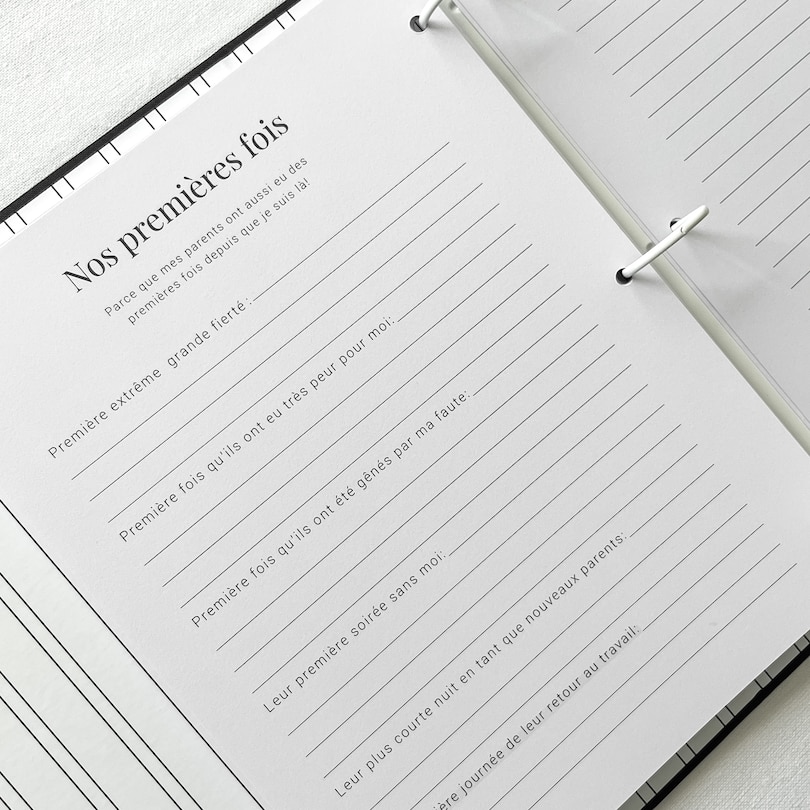 Nos premières fois
Parce que mes parents ont aussi eu des
premières fois depuis que je suis là!
Première extrême grande fierté :
Première fois qu'ils ont eu très peur pour moi:
Première fois qu'ils ont été gênés par ma faute:
Leur première soirée sans moi:
Leur plus courte nuit en tant que nouveaux parents:
journée de leur retour au travail: